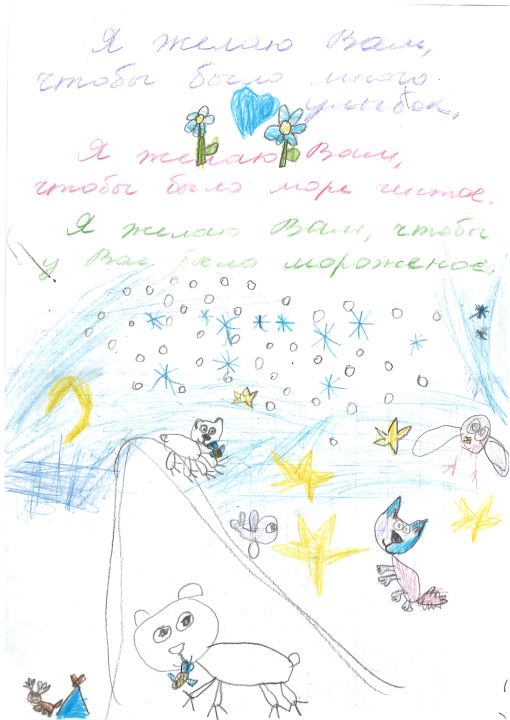 Я желаю Вам,
чтобы было много
улыбок.
Я желаю Вам,
чтобы было море чистое.
Я желаю Вам, чтобы
у Вас было мороженое.